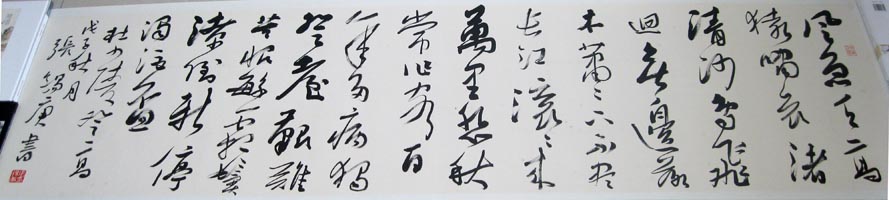 風急天高
猿嘯哀渚
清沙白鳥飛
迴無邊落
木蕭〻下不盡
長江滾〻來
萬里悲秋
常作客百
年多病獨
登臺艱難
苦恨繁霜鬢
潦倒新停
濁酒盃
杜少陵登高
戊子秋月
張錫庚書